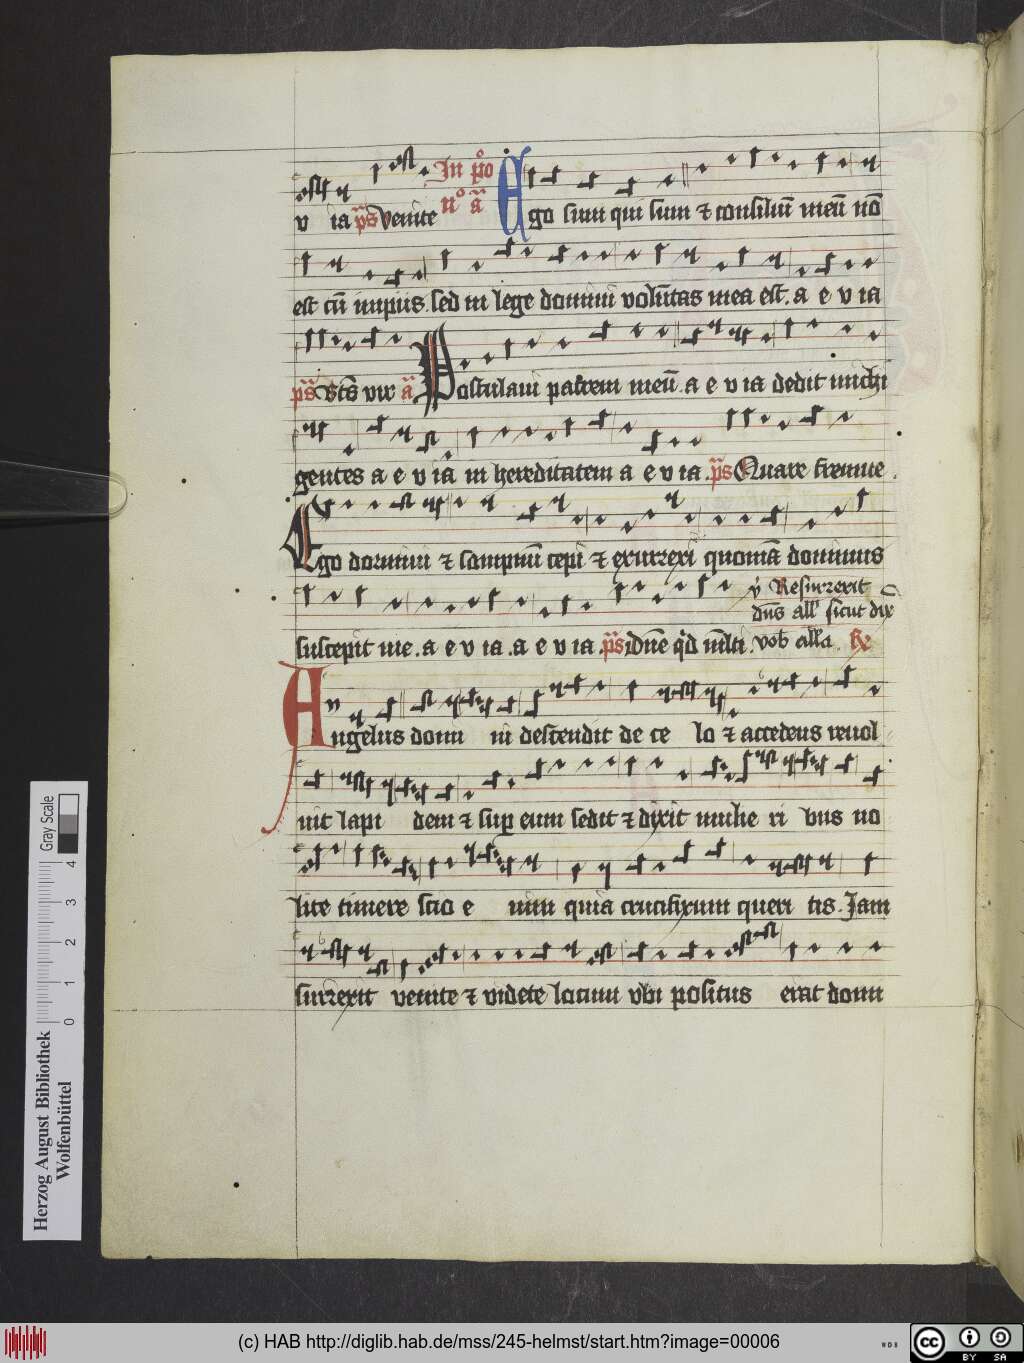 v ia ps Venite In po
no a Ego sum qui sum ⁊ consiliū meū nō
est cū impiis. sed in lege domini volūtas mea est. a e v ia
ps Bts vir a Postulaui patrem meū. a e v ia dedit michi
gentes a e v ia in hereditatem a e v ia. ps Quare fremue
Ego dormiui ⁊ sompnū cepi ⁊ exurrexi quoniā dominus
v Resurrexit
dn̄s all' sicut dix
suscepit me. a e v ia. a e v ia. ps dn̄e qd m̄lti. vob all'a.
Angelus domi ni descendit de ce lo ⁊ accedens reuol
uit lapi dem ⁊ sup eum sedit ⁊ dixit mulie ri bus no
lite timere scio e nim quia crucifixum queri tis. Jam
surrexit venite ⁊ videte locum vbi positus erat domi
Gray Scale
0 1 2 3 4
Herzog August Bibliothek
Wolfenbüttel
(c) HAB http://diglib.hab.de/mss/245-helmst/start.htm?image=00006
WDB
cc BY SA